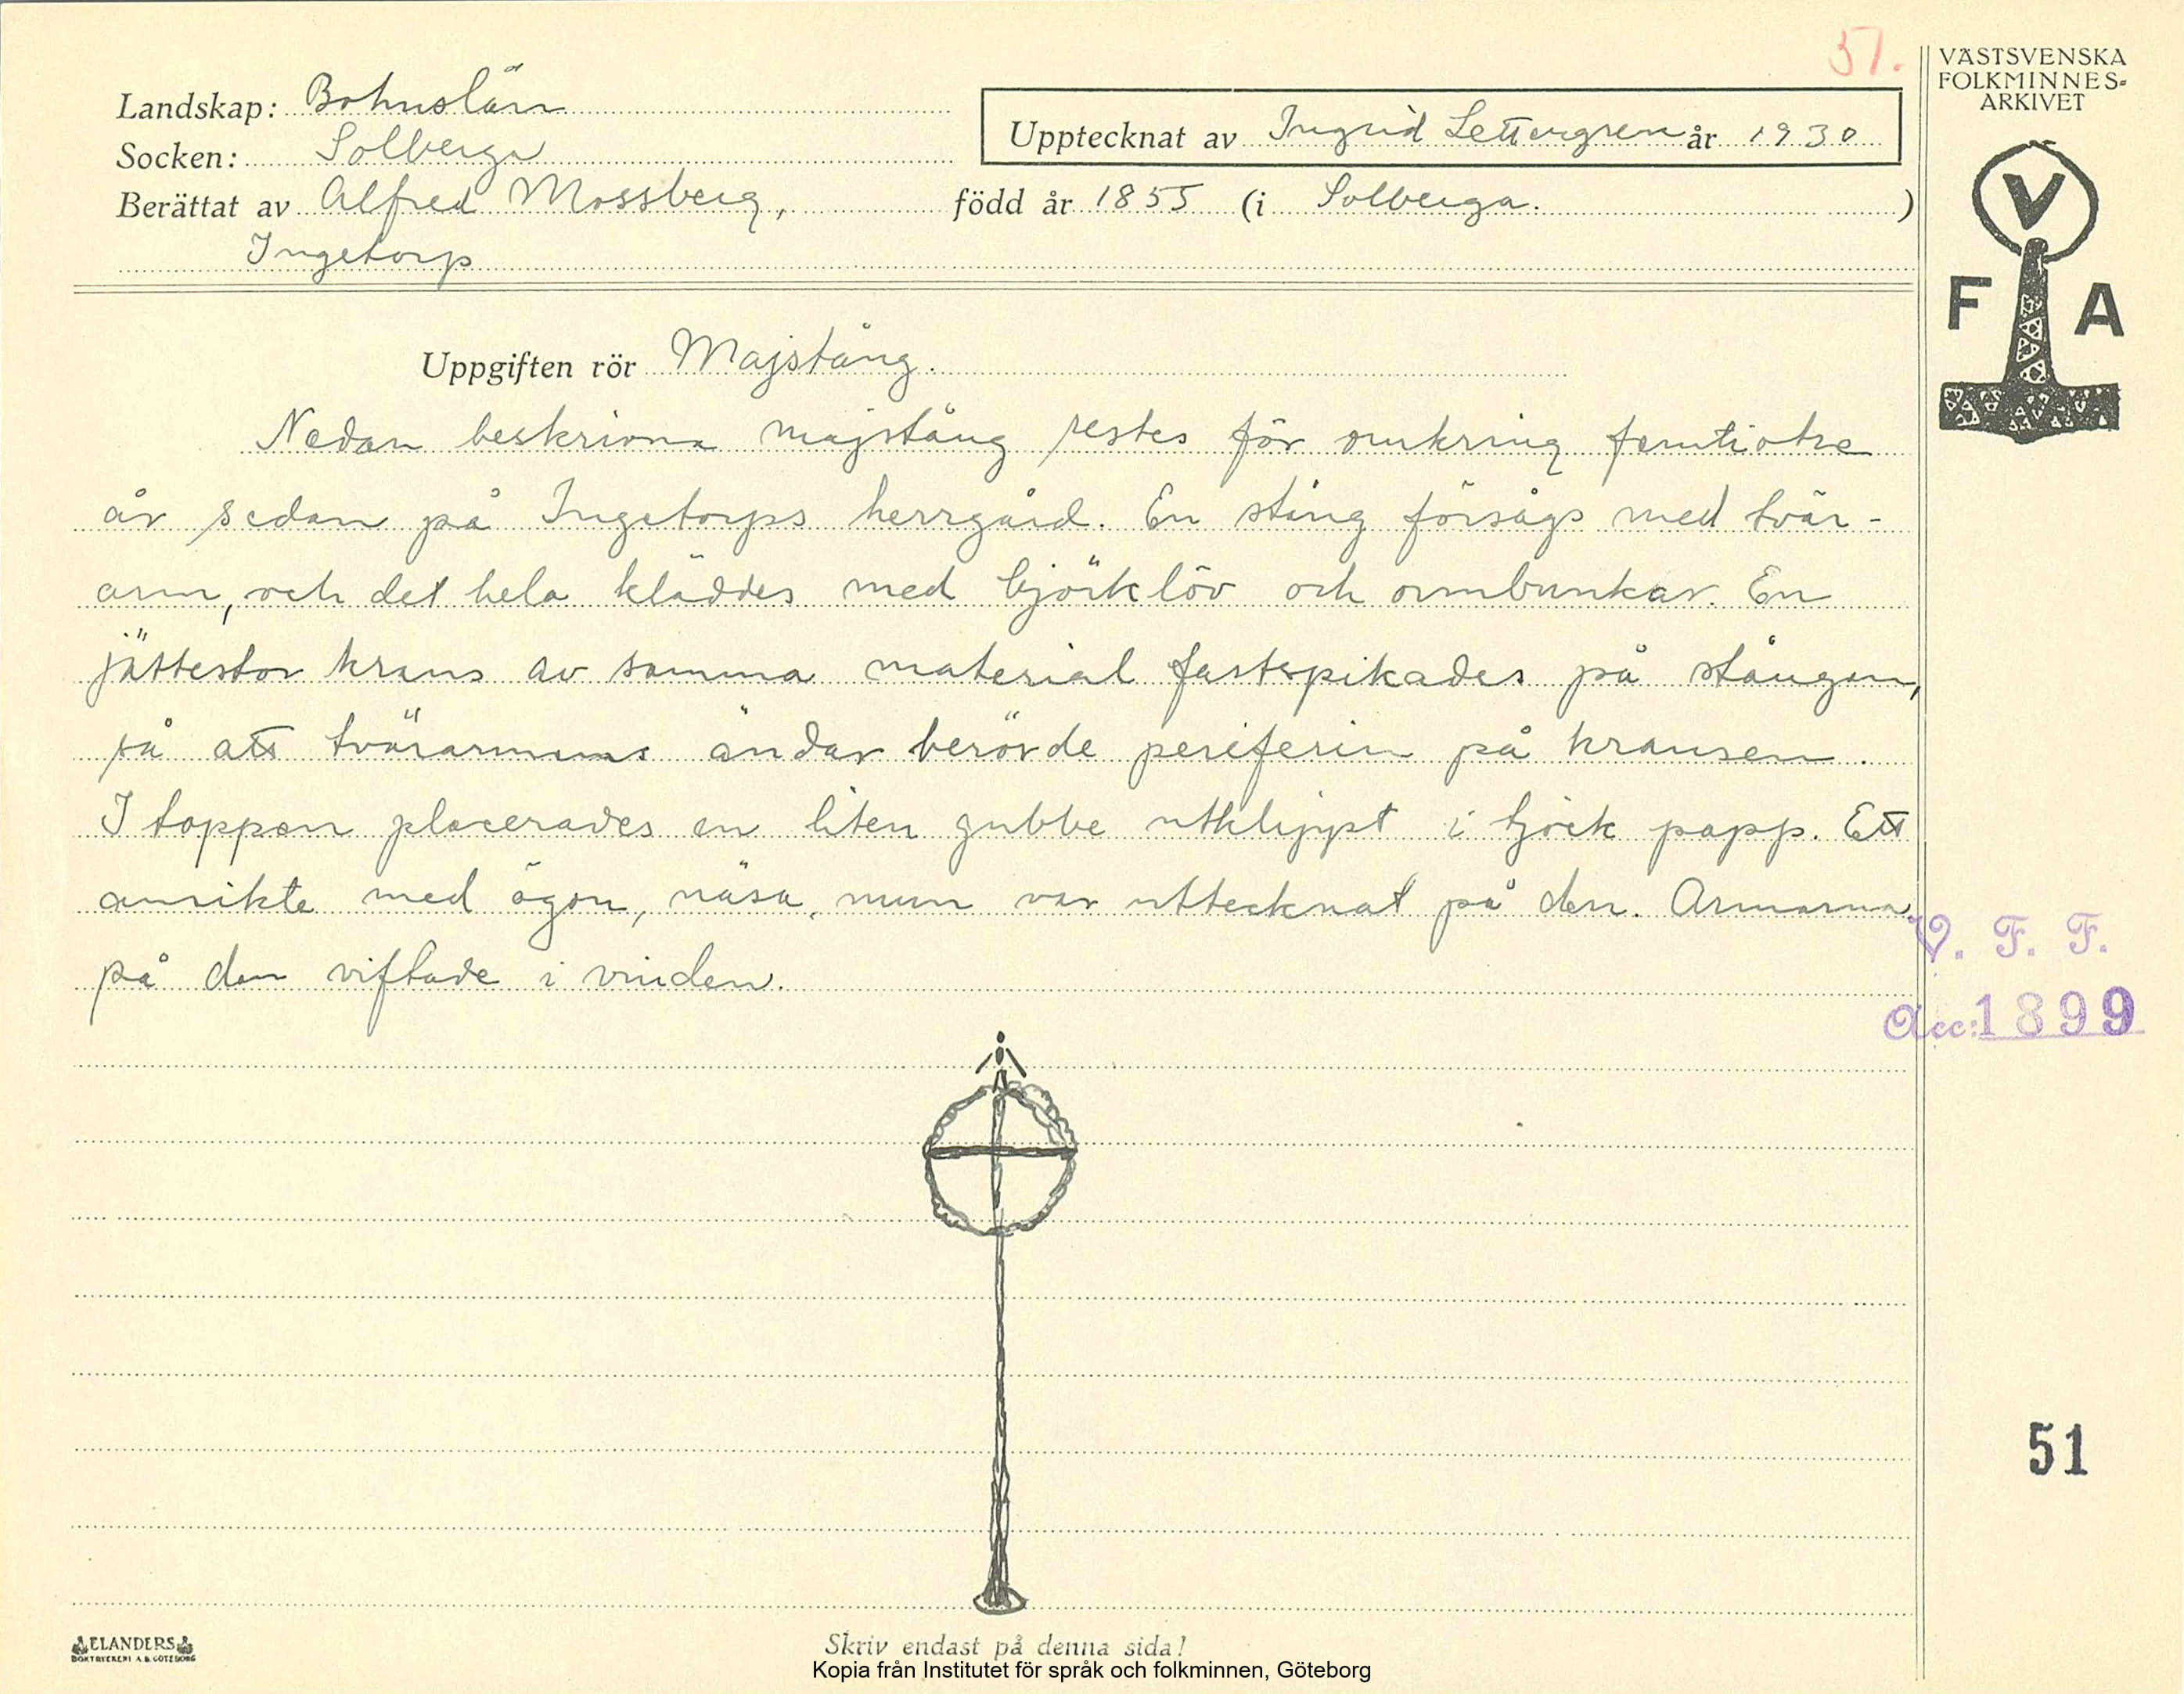 51.
VÄSTSVENSKA
FOLKMINNES-
ARKIVET
Landskap: Bohuslän
Upptecknat av Ingrid Settergren år 1930
Socken: Solberga
Berättat av Alfred Mossberg, född år 1855 (i Solberga. )
Ingetorp
V
F A
Uppgiften rör Majstång.
Nedan beskrivna majstång restes för omkring femtiotre
år sedan på Ingetorps herrgård. En stång försågs med tvär-
arm, och det hela kläddes med björklöv och ormbunkar. En
jättestor krans av samma material fastspikades på stången,
så att tvärarmens ändar berörde periferin på kransen.
I toppen placerades en liten gubbe utklippt i tjock papp. Ett
ansikte med ögon, näsa, mun var uttecknat på den. Armarna
på den viftade i vinden.
V. F. F.
Acc: 1899
51
ELANDERS
BOKTRYCKERI A.B. GÖTEBORG
Skriv endast på denna sida!
Kopia från Institutet för språk och folkminnen, Göteborg